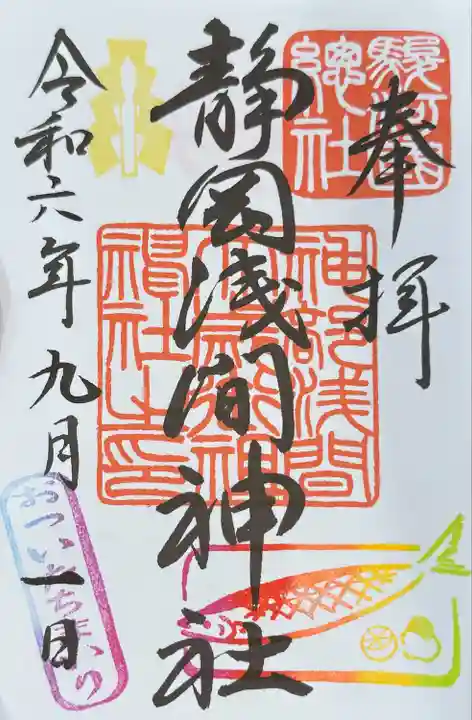 奉拝
駿河國
總社
静岡浅間神社
神部浅間
令和六年九月一日
おついたちまいり